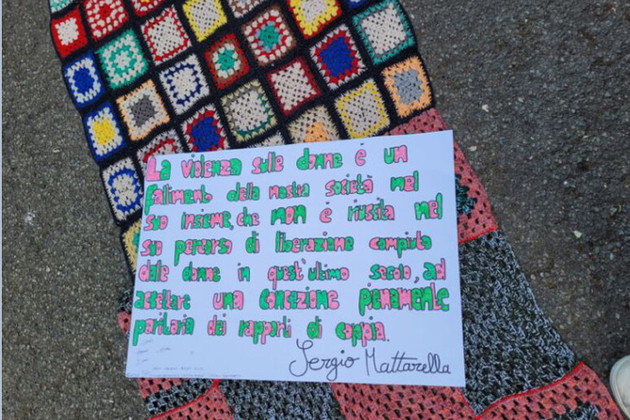 La violenza sulle donne è un
fallimento della nostra società nel
suo insieme, che non è riuscita nel
suo percorso di liberazione compiuto
dalle donne in quest'ultimo secolo, ad
accettare una concezione pienamente
paritaria dei rapporti di coppia.
Sergio Mattarella